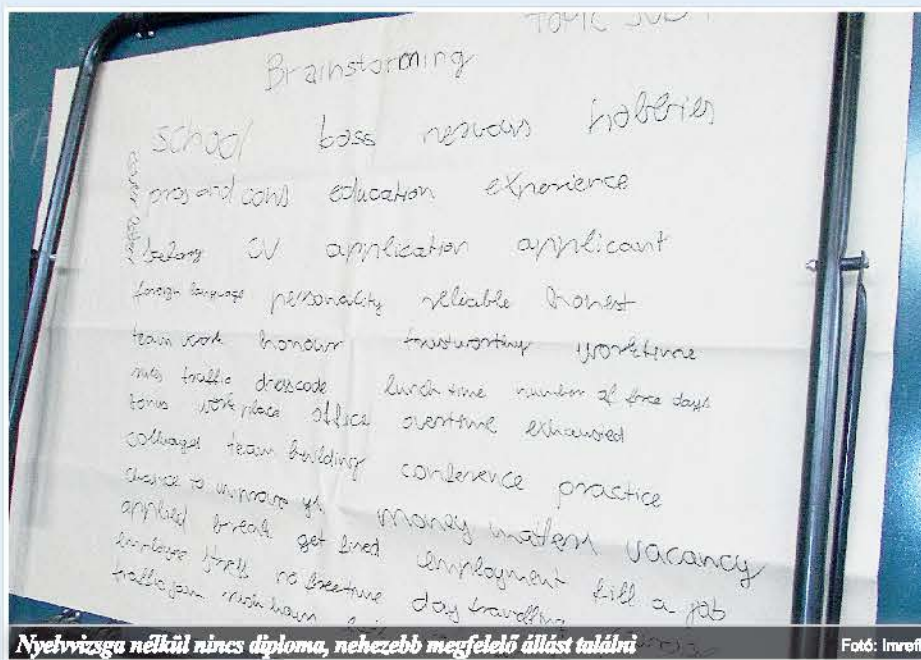 TOPIC JOB
Brainstorming
school boss nervous hobbies
pros and cons education experience
CV application applicant
foreign language personality reliable honest
team work honour trustworthy worktime
traffic dresscode lunch time number of free days
work place office overtime exhausted
team building conference practice
chance to improve money matters vacancy
applied break get fired employment fill a job
employee no freetime day travelling
traffic jam rush hour
Nyelvvizsga nélkül nincs diploma, nehezebb megfelelő állást találni
Fotó: